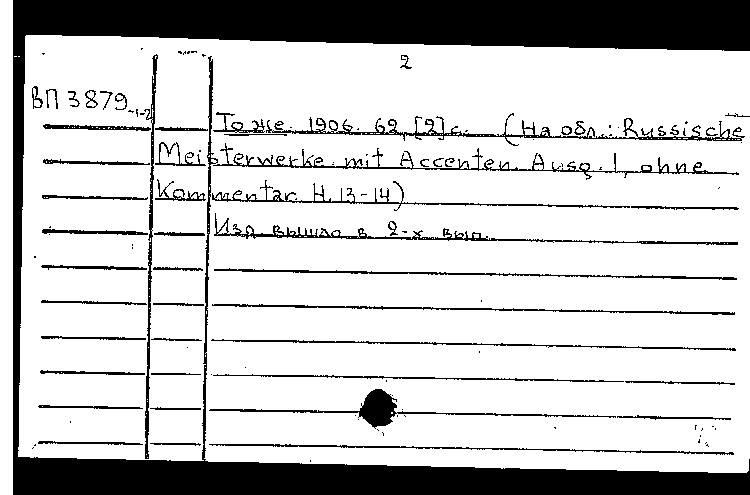 2
ВП 3879-1-2
То же. 1906. 62, [2] с. (На обл.: Russische
Meisterwerke mit Accenten. Ausg. 1, ohne
Kommentar. H. 13-14)
Изд. вышло в 2-х вып.